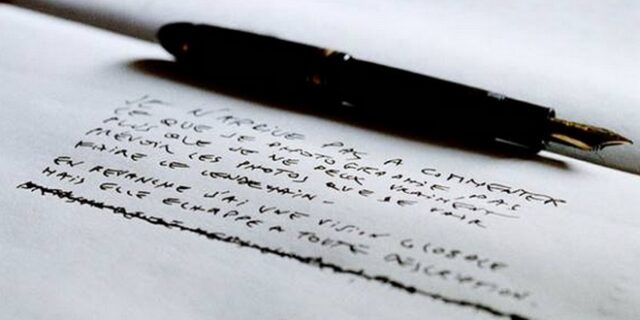 JE N'ARRIVE PAS A COMMENTER
CE QUE JE PHOTOGRAPHIE, PAS
PLUS QUE JE NE PEUX VRAIMENT
PRÉVOIR LES PHOTOS QUE JE VAIS
FAIRE LE LENDEMAIN.
EN REVANCHE J'AI UNE VISION GLOBALE
MAIS ELLE ECHAPPE A TOUTE DESCRIPTION.